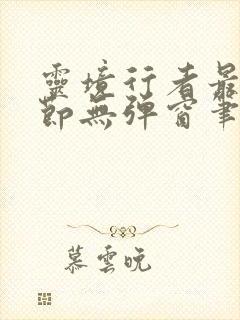 靈境行者最
節無彈窗筆
慕雲晚